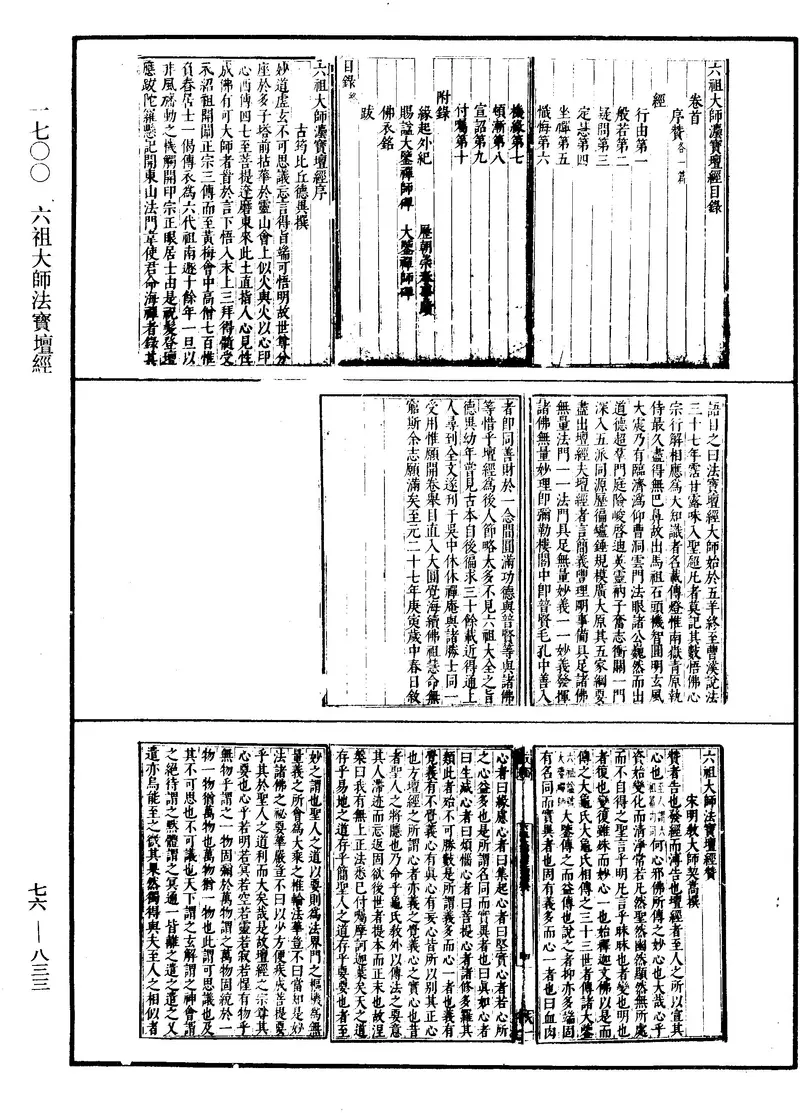 一七〇〇　六祖大師法寶壇經
七六—八三三
六祖大師法寶壇經目錄
卷首
序贊各一篇
經
行由第一
般若第二
疑問第三
定慧第四
坐禪第五
懺悔第六
機緣第七
頓漸第八
宣詔第九
付囑第十
附錄
緣起外紀
歷朝崇奉事蹟
賜諡大鑒禪師碑　大鑒禪師碑
佛衣銘
跋
目錄終
六祖大師法寶壇經序
古筠比丘德異撰
妙道虛玄不可思議忘言得旨端可悟明故世尊分
座於多子塔前拈華於靈山會上似火與火以心印
心西傳四七至菩提達磨東來此土直指人心見性
成佛有可大師者首於言下悟入末上三拜得髓受
衣紹祖開闡正宗三傳而至黃梅會中高僧七百惟
負舂居士一偈傳衣為六代祖南遯十餘年一旦以
非風旛動之機觸開印宗正眼居士由是祝髮登壇
應跋陀羅懸記開東山法門韋使君命海禪者錄其
語目之曰法寶壇經大師始於五羊終至曹溪說法
三十七年霑甘露味入聖超凡者莫記其數悟佛心
宗行解相應為大知識者名載傳燈惟南嶽青原執
侍最久盡得無巴鼻故出馬祖石頭機智圓明玄風
大震乃有臨濟溈仰曹洞雲門法眼諸公巍然而出
道德超群門庭險峻啓迪英靈衲子奮志衝關一門
深入五派同源歷徧爐錘規模廣大原其五家綱要
盡出壇經夫壇經者言簡義豐理明事備具足諸佛
無量法門一一法門具足無量妙義一一妙義發揮
諸佛無量妙理即彌勒樓閣中即普賢毛孔中善入
者即同善財於一念間圓滿功德與普賢等與諸佛
等惜乎壇經為後人節略太多不見六祖大全之旨
德異幼年嘗見古本自後徧求三十餘載近得通上
人尋到全文遂刊于吳中休休禪庵與諸勝士同一
受用惟願開卷舉目直入大圓覺海續佛祖慧命無
窮斯余志願滿矣至元二十七年庚寅歲中春日敘
六祖大師法寶壇經贊
宋明教大師契嵩撰
贊者告也發經而溥告也壇經者至人之所以宣其
心也何心邪佛所傳之妙心也大哉心乎
資始變化而清淨常若凡然聖然幽然顯然無所處
而不自得之聖言乎明凡言乎昧昧也者變也明也
者復也變復雖殊而妙心一也始釋迦文佛以是而
傳之大龜氏大龜氏相傳之三十三世者傳諸大鑒
大鑒傳之而益傳也說之者抑亦多端固
有名同而實異者也固有義多而心一者也曰血肉
心者曰緣慮心者曰集起心者曰堅實心者若心所
之心益多也是所謂名同而實異者也曰真如心者
曰生滅心者曰煩惱心者曰菩提心者諸修多羅其
類此者殆不可勝數是所謂義多而心一者也義有
覺義有不覺義心有真心有妄心皆所以別其正心
也方壇經之所謂心者亦義之覺義心之實心也昔
者聖人之將隱也乃命乎龜氏教外以傳法之要意
其人滯迹而忘返固欲後世者提本而正末也故涅
槃曰我有無上正法悉已付囑摩訶迦葉矣天之道
存乎易地之道存乎簡聖人之道存乎要要也者至
妙之謂也聖人之道以要則為法界門之樞機為無
量義之所會為大乘之椎輪法華豈不曰當知是妙
法諸佛之祕要華嚴豈不曰以少方便疾成菩提要
乎其於聖人之道利而大矣哉是故壇經之宗尊其
心要也心乎若明若冥若空若靈若寂若惺有物乎
無物乎謂之一物固彌於萬物謂之萬物固統於一
物一物猶萬物也萬物猶一物也此謂可思議也及
其不可思也不可議也天下謂之玄解謂之神會謂
之絕待謂之默體謂之冥通一皆離之遣之遣之又
遣亦烏能至之微其果然獨得與夫至人之相似者